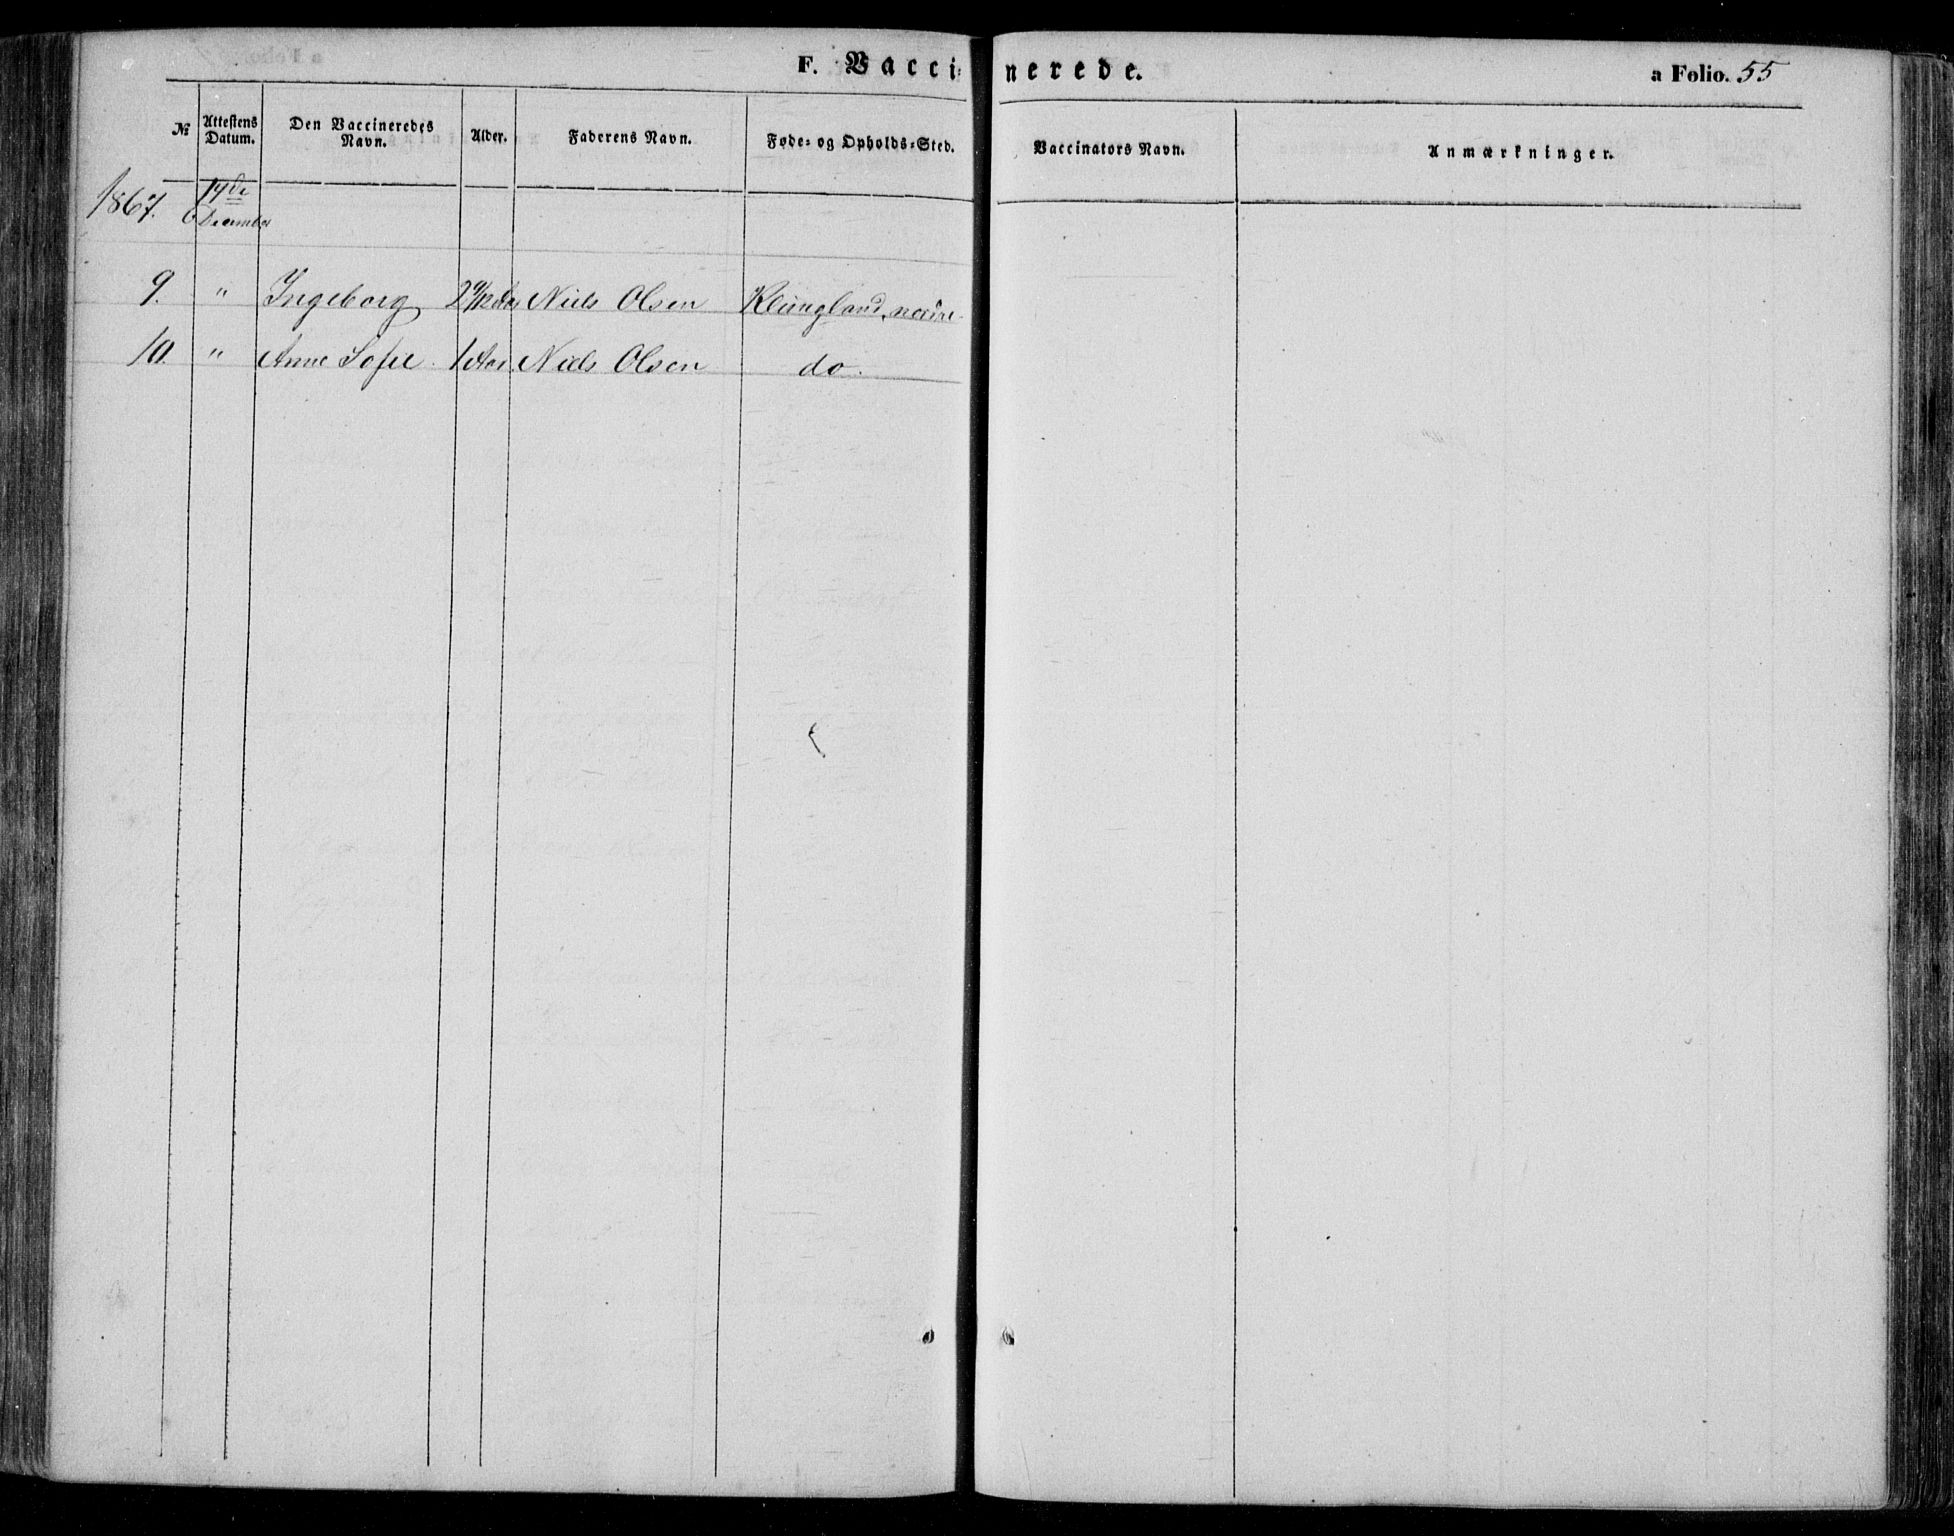 F. Vaccinerede.
a Folio. 55
№ Attestens Datum. Den Vaccineredes Navn. Alder. Faderens Navn. Føde- og Opholds-Sted. Vaccinators Navn. Anmærkninger.
1867. 14de December
9. " Ingeborg Niels Olsen Klungland, nedre
10. " Anne Sofie 1 Aar Niels Olsen do.